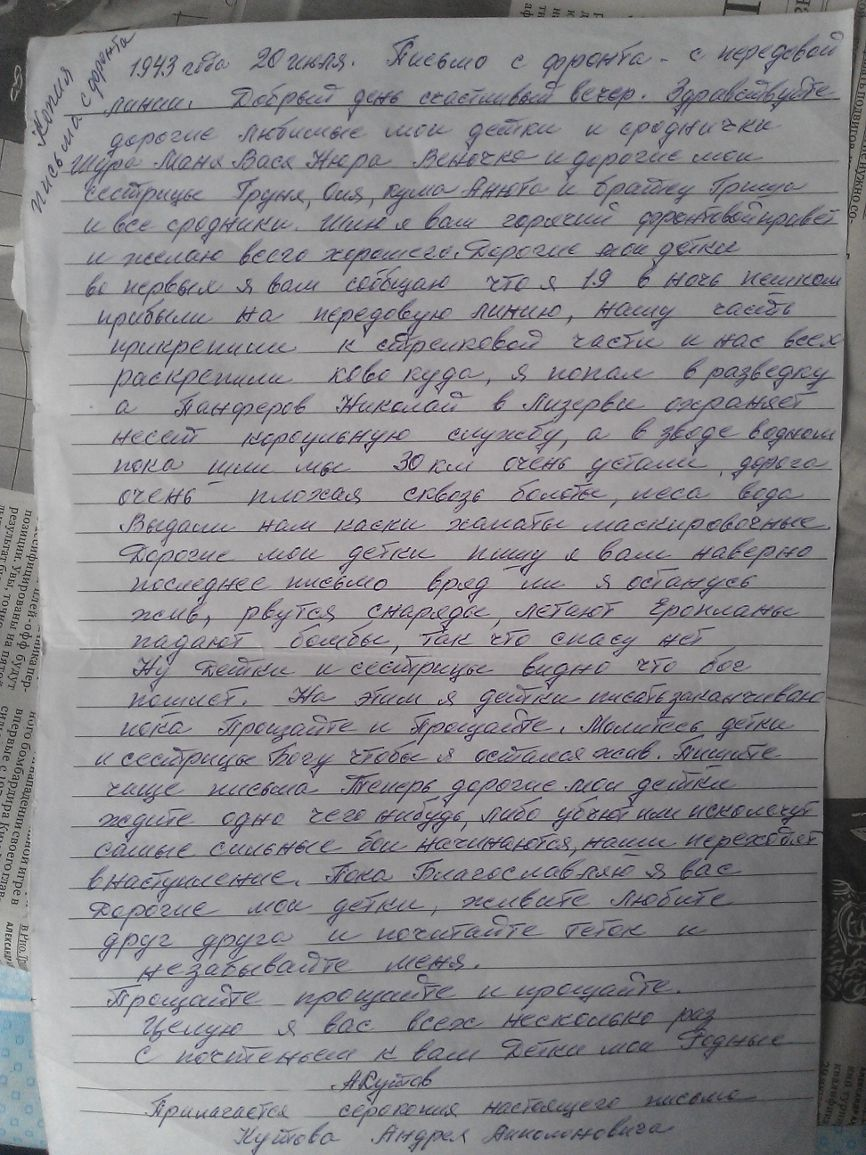 Копия
письма с фронта
1943 года 20 июля. Письмо с фронта - с передовой
линии. Добрый день счастливый вечер. Здравствуйте
дорогие любимые мои детки и сроднички
Шура Маня Вася Нюра Веночка и дорогие мои
сестрицы Груня, Оля, кума Анюта и братку Гриша
и все сродники. Шлю я вам горячий фронтовой привет
и желаю всего хорошего. Дорогие мои детки
во первых я вам сообщаю что я 19 в ночь пешком
прибыли на передовую линию, нашу часть
прикрепили к стрелковой части и нас всех
раскрепили ково куда, я попал в разведку
а Панферов Николай в лизерви охраняет
несет короульную службу, а в зводе водном
пока шли мы 30 км очень устали, дорога
очень плохая сквозь болоты, леса вода
Выдали нам каски халаты маскировочные.
Дорогие мои детки пишу я вам наверно
последнее письмо вряд ли я останусь
жив, рвутся снаряды, летают Еропланы
падают бомбы, так что спасу нет
Ну Детки и сестрицы видно что бог
пошлет. На этим я детки писать заканчиваю
пока Прощайте и Прощайте. Молитесь детки
и сестрицы Богу чтобы я остался жив. Пишите
чаще письма Теперь дорогие мои детки
ждите одно чего нибудь, либо убьют или исколечут
самые сильные бои начинаются, наши переходят
в наступление. Пока Благославляю я вас
Дорогие мои детки, живите любите
друг друга и почитайте теток и
незабывайте меня.
Прощайте прощайте и прощайте.
Целую я вас всех несколько раз
С почтеньем к вам Детки мои Родные
АКутов
Прилагается серокопия настоящего письма
Кутова Андрея Апполоновича